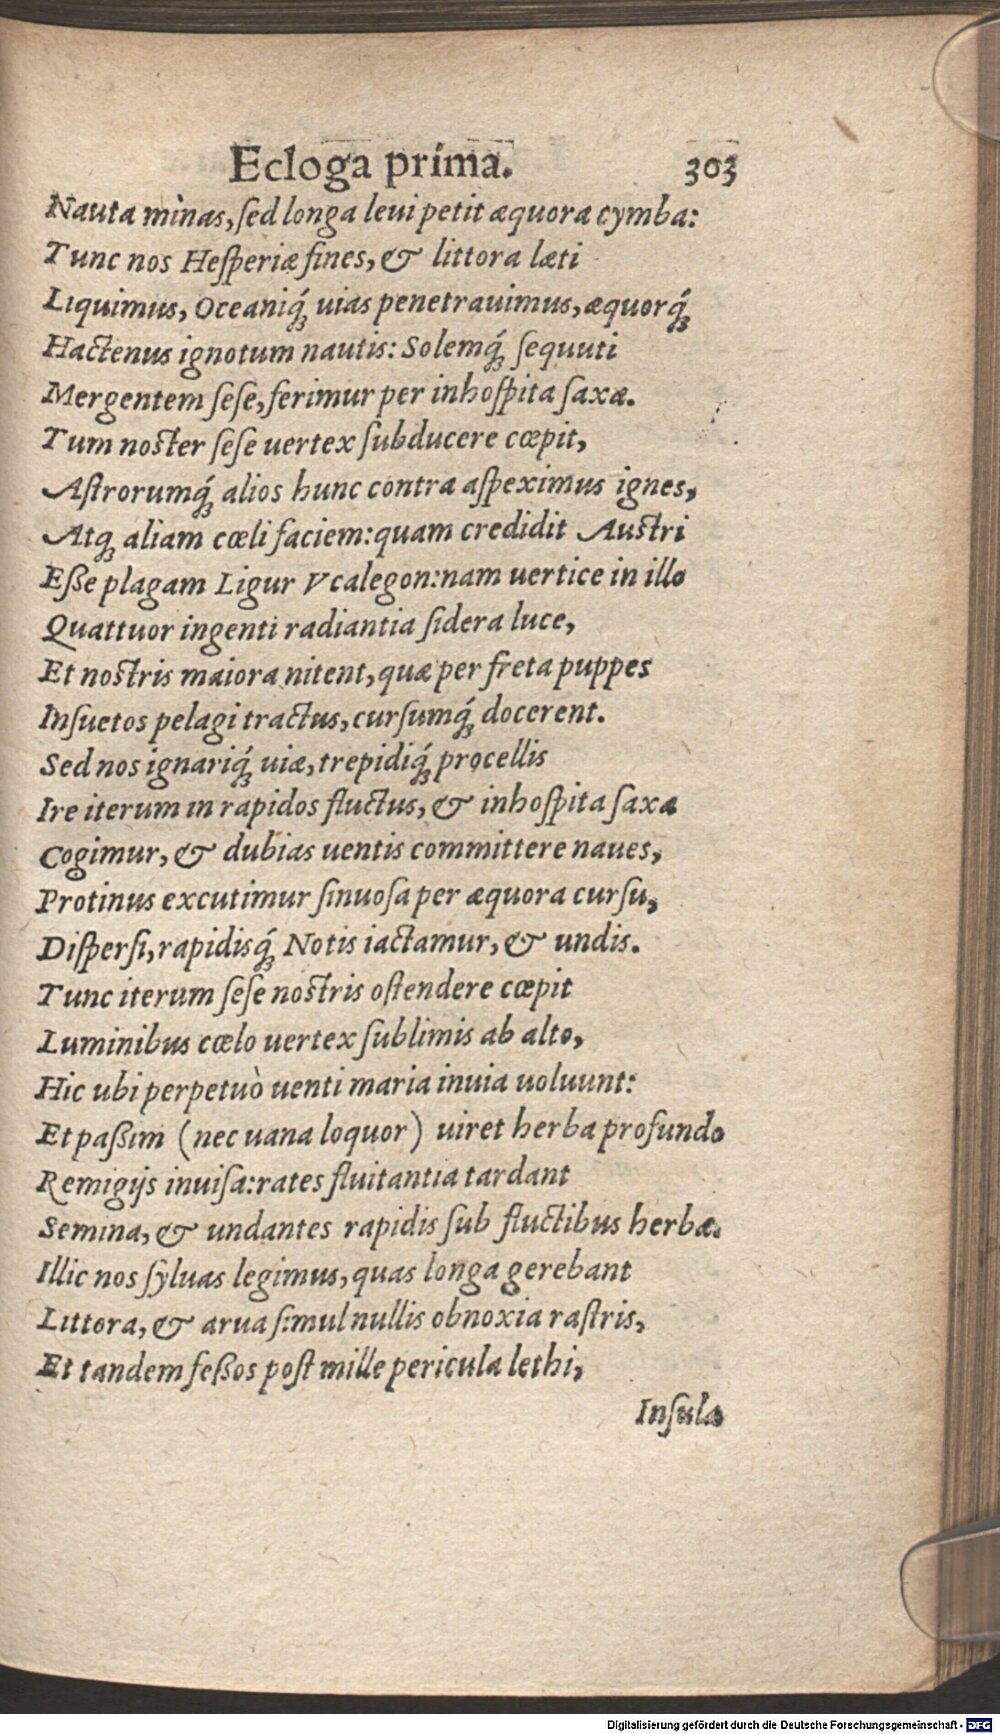 Ecloga prima. 303
Nauta minas, ſed longa leui petit æquora cymba:
Tunc nos Heſperiæ fines, & littora læti
Liquimus, Oceaniq́; uias penetrauimus, æquorq́;
Hactenus ignotum nautis: Solemq́; ſequuti
Mergentem ſeſe, ferimur per inhoſpita ſaxa.
Tum noſter ſeſe uertex ſubducere cœpit,
Aſtrorumq́; alios hunc contra aſpeximus ignes,
Atq; aliam cœli faciem: quam credidit Auſtri
Eße plagam Ligur Vcalegon: nam uertice in illo
Quattuor ingenti radiantia ſidera luce,
Et noſtris maiora nitent, quæ per freta puppes
Inſuetos pelagi tractus, curſumq́; docerent.
Sed nos ignariq́; uiæ, trepidiq́; procellis
Ire iterum in rapidos fluctus, & inhoſpita ſaxa
Cogimur, & dubias uentis committere naues,
Protinus excutimur ſinuoſa per æquora curſu,
Diſperſi, rapidisq́; Notis iactamur, & undis.
Tunc iterum ſeſe noſtris oſtendere cœpit
Luminibus cœlo uertex ſublimis ab alto,
Hic ubi perpetuò uenti maria inuia uoluunt:
Et paßim (nec uana loquor) uiret herba profundo
Remigijs inuiſa: rates fluitantia tardant
Semina, & undantes rapidis ſub fluctibus herbæ.
Illic nos ſyluas legimus, quas longa gerebant
Littora, & arua ſimul nullis obnoxia raſtris,
Et tandem feßos poſt mille pericula lethi,
Inſula
Digitalisierung gefördert durch die Deutsche Forschungsgemeinschaft - DFG